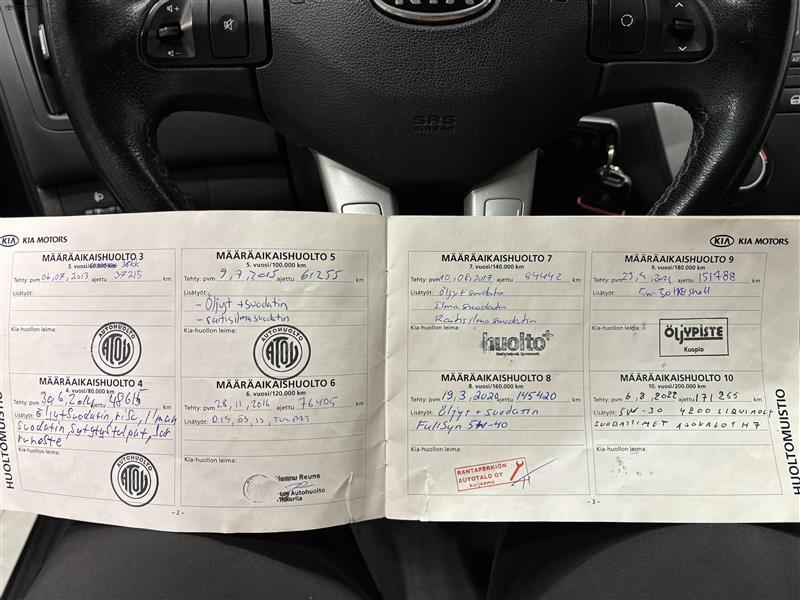 KIA
SRS
AIRBAG
KIA KIA MOTORS
MÄÄRÄAIKAISHUOLTO 3
3. vuosi/60.000 km 36kk
Tehty: pvm 04.07.2013 ajettu 37215 km
Lisätyöt:
Kia-huollon leima:
AUTOHUOLTO
ATOY
MÄÄRÄAIKAISHUOLTO 4
4. vuosi/80.000 km
Tehty: pvm 30.6.2014 ajettu 48615 km
Lisätyöt: Öljyt+Suodatin,
Suodatin, Sytytystulpat,
Kia-huollon leima:
AUTOHUOLTO
ATOY
MÄÄRÄAIKAISHUOLTO 5
5. vuosi/100.000 km
Tehty: pvm 9.7.2015 ajettu 61255 km
Lisätyöt:
- Öljyt + suodatin
- raitisilmasuodatin
Kia-huollon leima:
AUTOHUOLTO
ATOY
MÄÄRÄAIKAISHUOLTO 6
6. vuosi/120.000 km
Tehty: pvm 28.11.2016 ajettu 76405 km
Lisätyöt: TULPAT
Kia-huollon leima:
Hannu Reuna
Autohuolto
HUOLTOMUISTIO
-2-
KIA KIA MOTORS
MÄÄRÄAIKAISHUOLTO 7
7. vuosi/140.000 km
Tehty: pvm 10.08.2017 ajettu 84442 km
Lisätyöt: Öljyt+suodatin
Ilmasuodatin
Raitisilmasuodatin
Kia-huollon leima:
huolto+
MÄÄRÄAIKAISHUOLTO 8
8. vuosi/160.000 km
Tehty: pvm 19.3.2020 ajettu 145420 km
Lisätyöt: Öljyt + suodatin
FullSyn 5W-40
Kia-huollon leima:
RANTAPERKIÖN
AUTOTALO OY
korjaamo
MÄÄRÄAIKAISHUOLTO 9
9. vuosi/180.000 km
Tehty: pvm 23.4.2021 ajettu 151788 km
Lisätyöt: 5w-30 shell
Kia-huollon leima:
ÖLJYPISTE
Kuopio
MÄÄRÄAIKAISHUOLTO 10
10. vuosi/200.000 km
Tehty: pvm 6.8.2022 ajettu 171265 km
Lisätyöt: 5W-30 4200 LIQUI MOLY
SUODATTIMET AJOVALOT H7
Kia-huollon leima:
HUOLTOMUISTIO
-3-